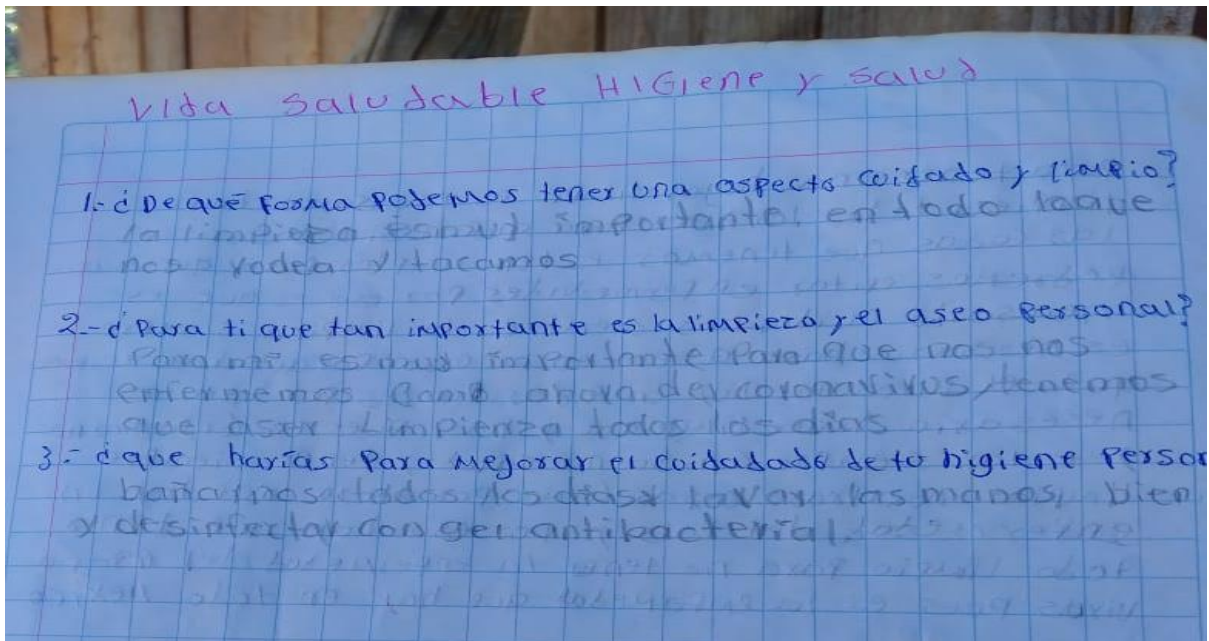 Vida saludable HIGiene y salud
1.- ¿De qué forma podemos tener una aspecto cuidado y limpio?
la limpieza es muy importante, en todo loque
nos rodea y tacamos
2.- ¿Para ti que tan importante es la limpieza y el aseo personal?
Para mi es muy importante Para que nos nos
enfermemos como ahora del coronavirus, tenemos
que aser Limpienza todos los dias
3.- ¿que harías para mejorar el cuidadado de tu higiene person
bañarnos todos los dias y lavar las manos, bien
y desinfectar con gel antibacterial.